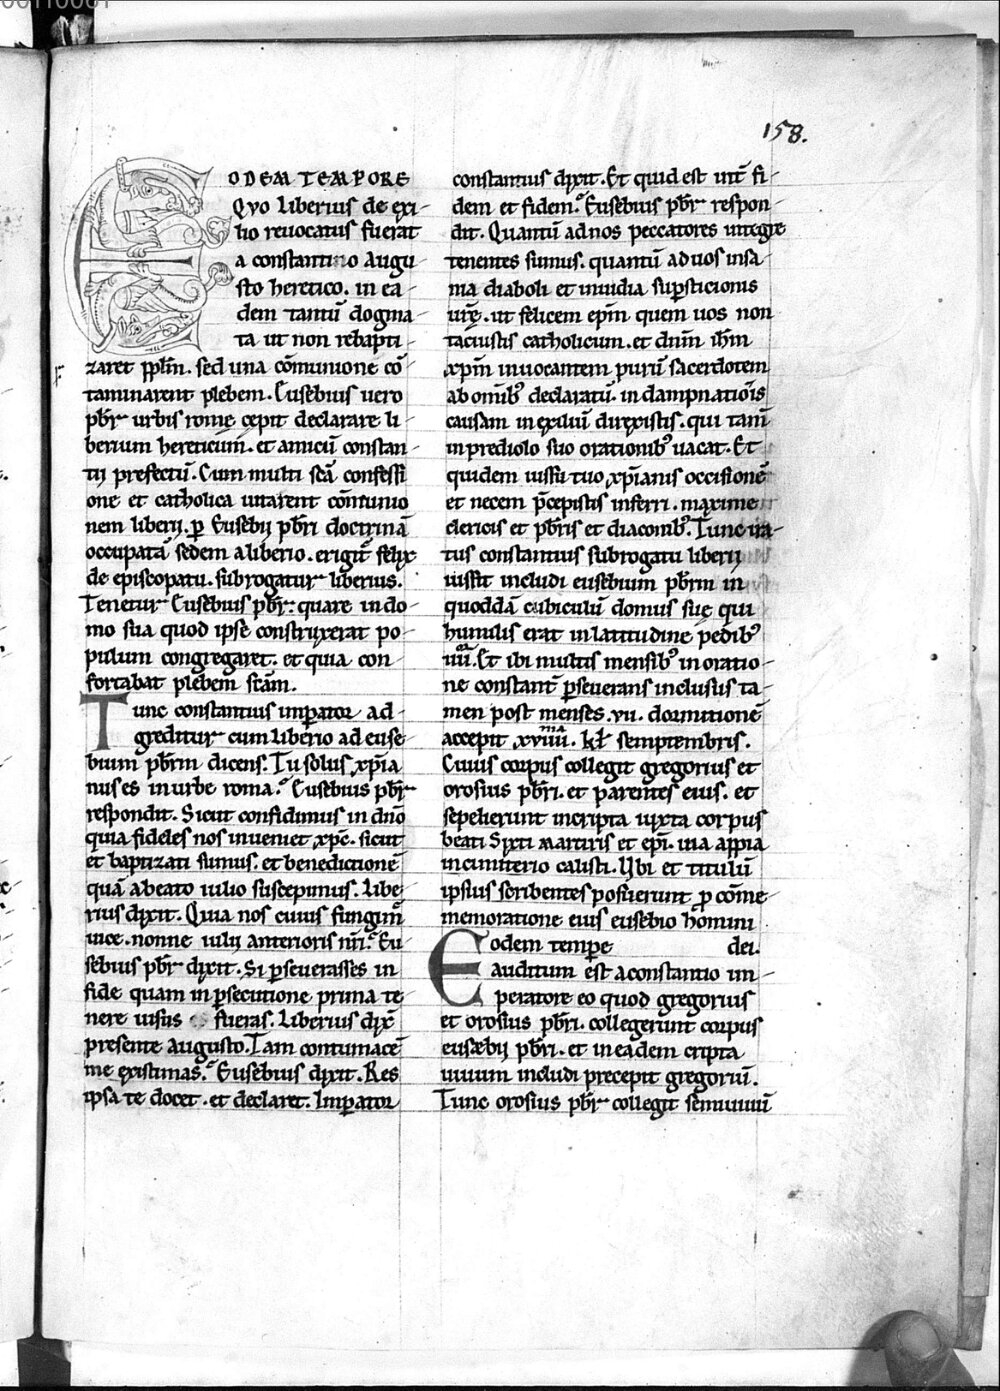 158.
EODEM TEMPORE
Quo liberius de exi-
lio reuocatus fuerat
a constantino augu-
sto heretico. in ea-
dem tantū dogma-
ta ut non rebapti-
zaret pplm̄. sed una cōmunione cō-
taminarent plebem. Eusebius uero
pbr̄ urbis romę cepit declarare li-
berium hereticum. et amicū constan-
tij prefectū. Cum multi scā confessi-
one et catholica uitarent cōmunio
nem liberij. ꝑ Eusebij pbr̄i doctrinā
occupatā sedem a liberio. erigit̄ felix
de episcopatu. subrogatur liberius.
Tenetur Eusebius pbr̄. quare in do-
mo sua quod ipse construxerat po-
pulum congregaret. et quia con-
fortabat plebem scām.
Tunc constantius imꝑator ad-
greditur cum liberio ad euse-
bium pbr̄m dicens. Tu solus xp̄ia
nus es in urbe roma? Eusebius pbr̄
respondit. Sicut confidimus in dn̄o
quia fideles nos inueniet xp̄c. sicut
et baptizati sumus. et benedictionē
quā a beato iulio suscepimus. Libe-
rius dixit. Quia nos cuius fungim̄
uice. nonne iulij anterioris nr̄i? Eu-
sebius pbr̄ dixit. Si ꝑseuerasses in
fide quam in ꝑsecutione prima te-
nere uisus fueras. Liberius dix̄
presente augusto. Iam contumacē
me existimas? Eusebius dixit. Res
ipsa te docet. et declaret. Imꝑator
constantius dixit. Et quid est int̄ fi-
dem et fidem? Eusebius pbr̄ respon-
dit. Quantū ad nos peccatores integre
tenentes sumus. quantū ad uos insa-
nia diaboli et inuidia suꝑsticionis
ur̄ę. ut felicem ep̄m quem uos non
tacuistis catholicum. et dn̄m ih̄m
xp̄m inuocantem purū sacerdotem
ab omīb; declaratū. in dampnatiōis
causam in exiliū direxistis. qui tam̄
in prediolo suo orationib; uacat. Et
quidem iussu tuo xp̄ianis occisionē
et necem p̄cepistis inferri. maxime
clericis et pbr̄is et diaconib;. Tunc ira-
tus constantius subrogatu liberij
iussit includi eusebium pbr̄m in
quoddā cubiculū domus suę qui
humilis erat in latitudine pedib;
iiii. Et ibi multis mensib; in oratio-
ne constant̄ ꝑseuerans inclusus ta-
men post menses. vii. dormitionē
accepit xviiii. kl̄ semptembris.
Cuius corpus collegit gregorius et
orosius pbr̄i. et parentes eius. et
sepelierunt in cripta iuxta corpus
beati Sixti martiris et ep̄i. uia appia
in cimiterio calisti. Ubi et titulū
ipsius scribentes posuerunt ꝑ cōme-
memoratione eius eusebio homini
dei.
Eodem tempe
auditum est a constantio im-
peratore eo quod gregorius
et orosius pbr̄i. collegerunt corpus
eusæbij pbr̄i. et in eadem cripta
uiuum includi precepit gregoriū.
Tunc orosius pbr̄ collegit semiuiuū